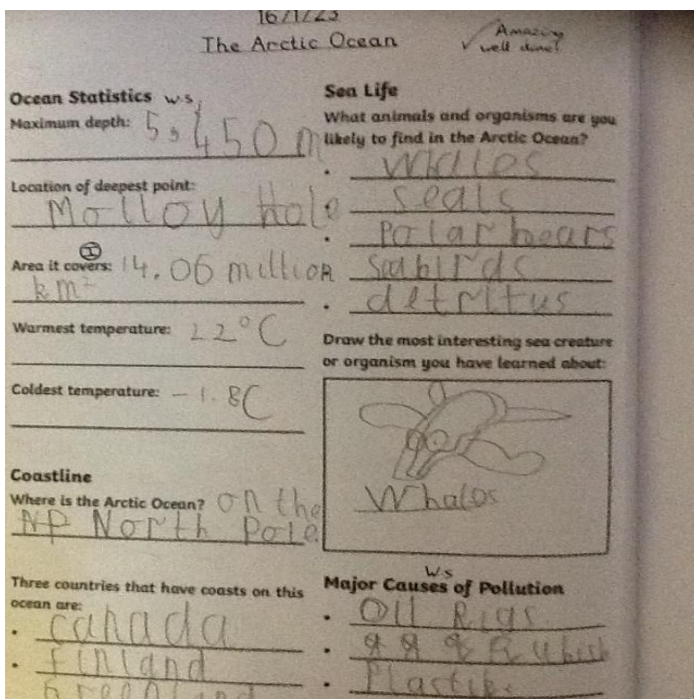 16/1/23
The Arctic Ocean
Amazing
well done!
Ocean Statistics w.s
Maximum depth: 5,450 m
Location of deepest point:
Molloy Hole
I
Area it covers: 14.06 million
km²
Warmest temperature: 22°C
Coldest temperature: -1.8C
Coastline
Where is the Arctic Ocean? on the
NP North Pole
Three countries that have coasts on this
ocean are:
• canada
• finland
Greenland
Sea Life
What animals and organisms are you
likely to find in the Arctic Ocean?
• Whales
• seals
• Polar bears
• Seabirds
• detritus
Draw the most interesting sea creature
or organism you have learned about:
Whales
w.s
Major Causes of Pollution
• Oil Rigs
• Rubish
• Plastik